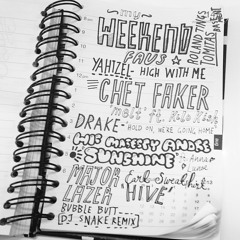 my
WEEKEND
FAVS
ROLAND TINGS
TOMAS
BARFOD
YAHZEL- HIGH WITH ME
CHET FAKER
"melt" ft. Kilo Kish
DRAKE- HOLD ON, WE'RE GOING HOME
HIS MAJESTY ANDRE
SUNSHINE
ft. Anna
MAJOR
LAZER
BUBBLE BUTT
(DJ SNAKE REMIX)
Earl Sweatshirt
"HIVE"